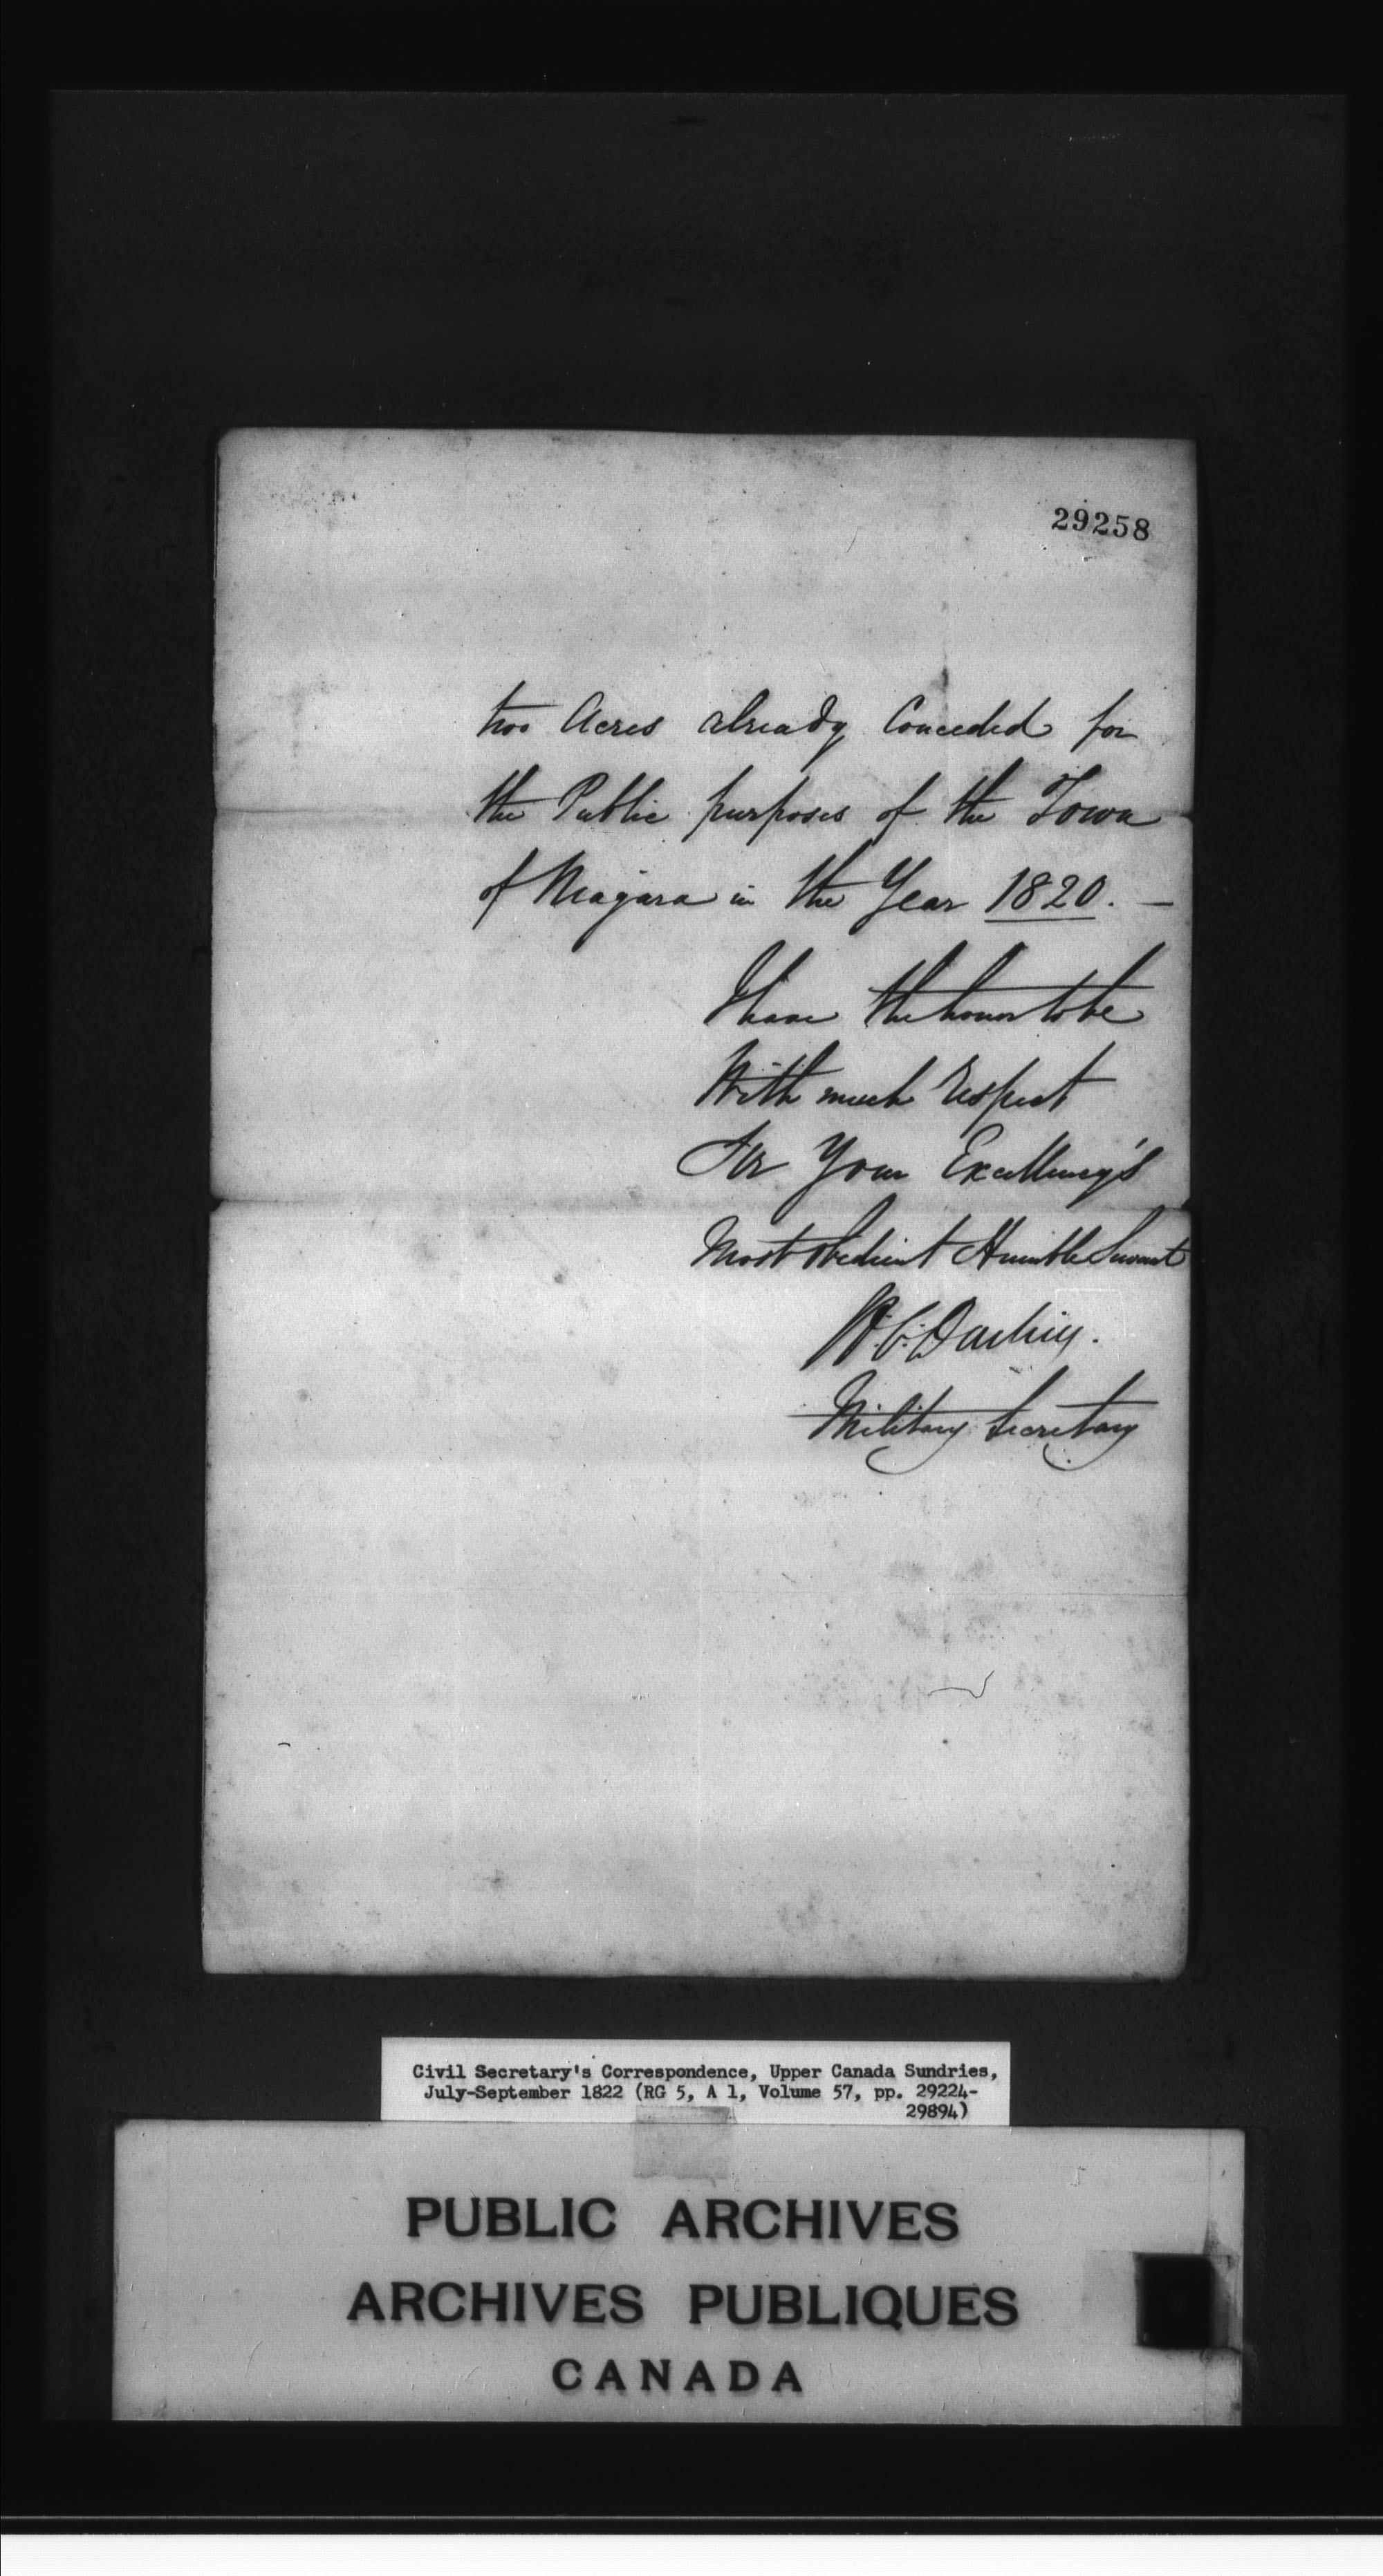 29258
two Acres already Conceded for
the Public purposes of the Town
of Niagara in the Year 1820. —
I have the honor to be
With much respect
Sir Your Excellency's
Most obedient Humble Servant
H.C. Darling.
Military Secretary
Civil Secretary's Correspondence, Upper Canada Sundries,
July-September 1822 (RG 5, A 1, Volume 57, pp. 29224-
29894)
PUBLIC ARCHIVES
ARCHIVES PUBLIQUES
CANADA